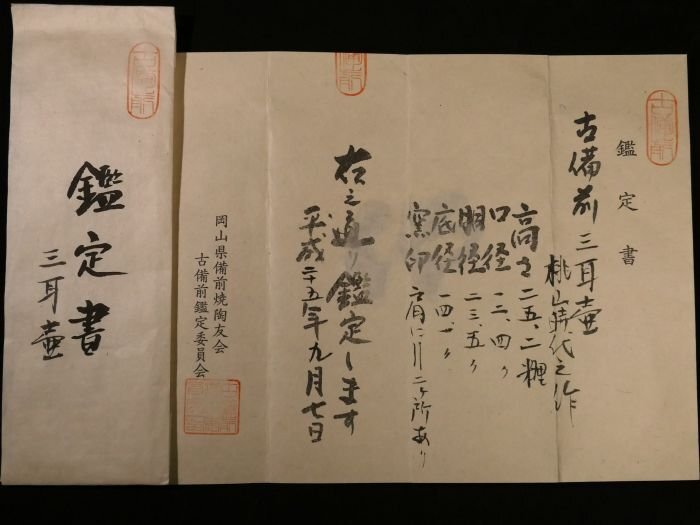 古備前
鑑定書
三耳壷
古備前
鑑定書
古備前三耳壷
桃山時代之作
高さ 二五、二糎
口径 一二、四〃
胴径 二三、五〃
底径 一四、
窯印 肩に 二ヶ所あり
右之通り鑑定します
平成二十五年九月七日
岡山県備前焼陶友会
古備前鑑定委員会